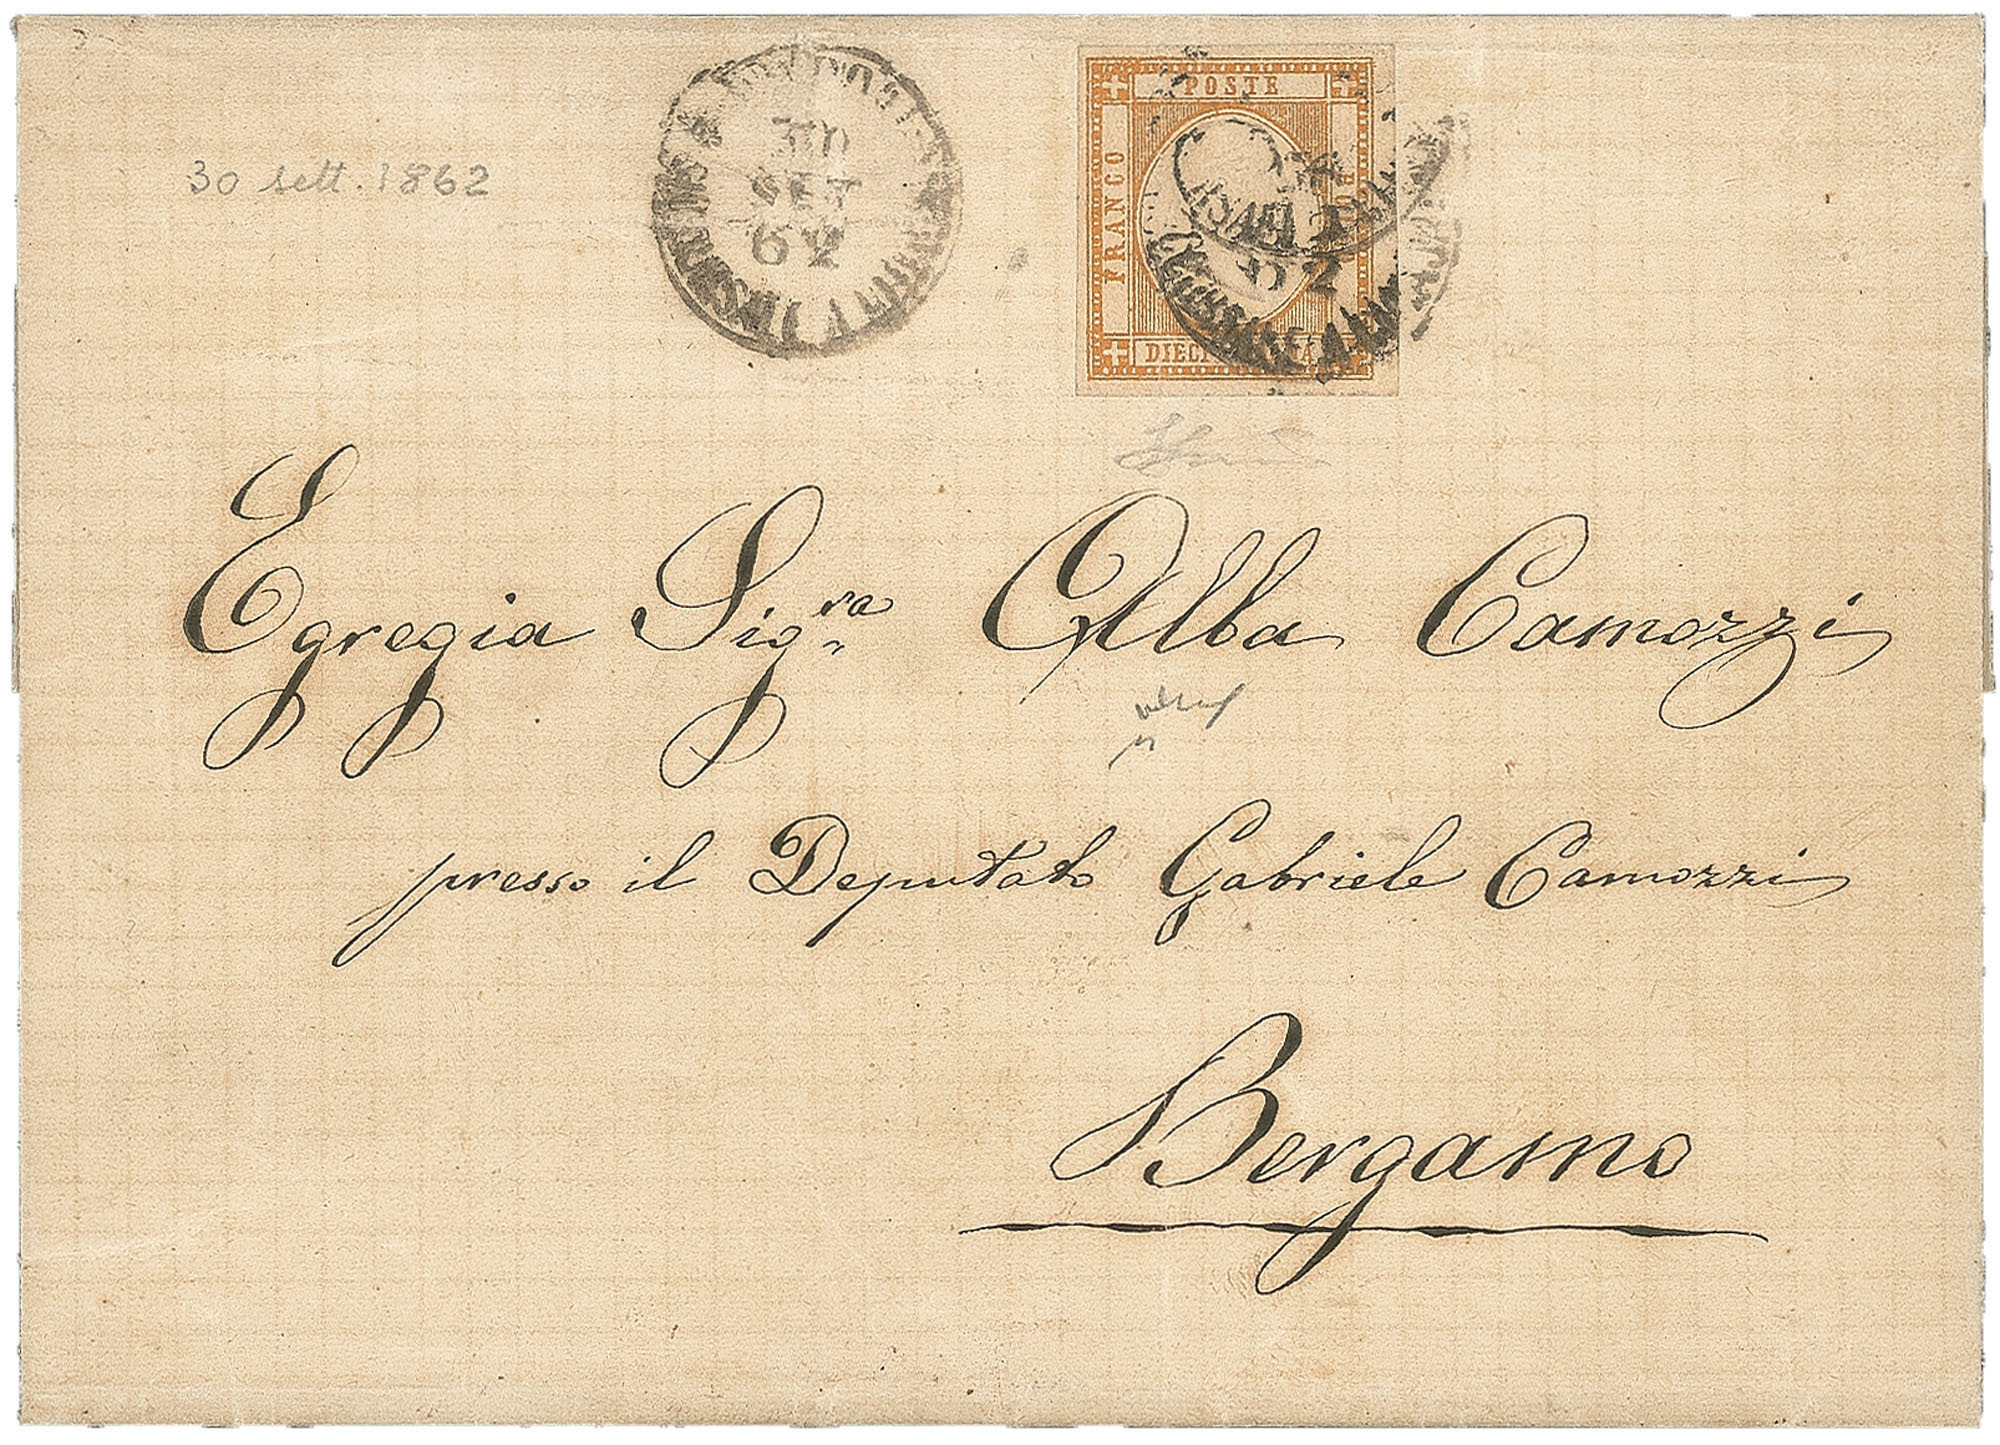 30 sett. 1862
30
SET
62
POSTE
FRANCO
BOLLO
DIECI
Egregia Sig.ra Alba Camozzi
presso il Deputato Gabriele Camozzi
Bergamo